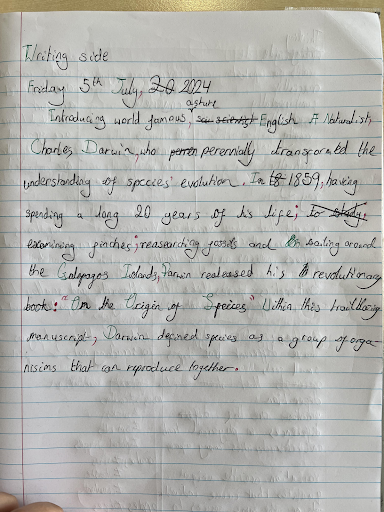 Writing side
Friday 5th July, 20 2024
astute
Introducing world famous, scientist English Naturalist
Charles Darwin, who perennially transformed the
understanding of species' evolution. In 18 1859, having
spending a long 20 years of his life; to study.
examining finches; reasearching fossils and sailing around
the Galapagos Islands, Darwin realeased his revolutionary
book: "On the Origin of Speices" Within this trailblazing
manuscript, Darwin defined species as a group of orga-
nisims that can reproduce together.